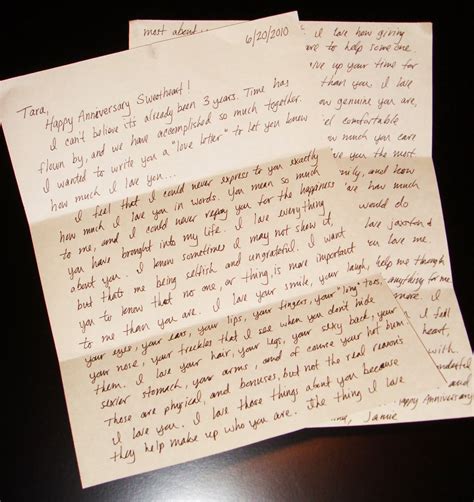 6/20/2010
Tara,
Happy Anniversary Sweetheart!
I can't believe its already been 3 years. Time has
flown by, and we have accomplished so much together.
I wanted to write you a "love letter" to let you know
how much I love you...
I feel that I could never express to you exactly
how much I love you in words. You mean so much
to me, and I could never repay you for the happiness
you have brought into my life. I love everything
about you. I know sometimes I may not show it,
but thats me being selfish and ungrateful. I want
you to know that no one, or thing, is more important
to me than you are. I love your smile, your laugh,
your eyes, your ears, your lips, your fingers, your "long" toes,
your nose, your freckles that I see when you don't hide
them. I love your hair, your legs, your sexy back, your
sexier stomach, your arms, and of course your hot bum.
Those are physical, and bonuses, but not the real reasons
I love you. I love those things about you because
they help make up who you are. The thing I love
most about
I love how giving
are to help someone
give up your time for
than you. I love
how genuine you are,
feel comfortable
much you care
ve you the most
and know
how much
would do
love jaxston &
love me.
help me through
anything for me
more. I
I feel
heart,
with
and
Happy Anniversary
Jamie